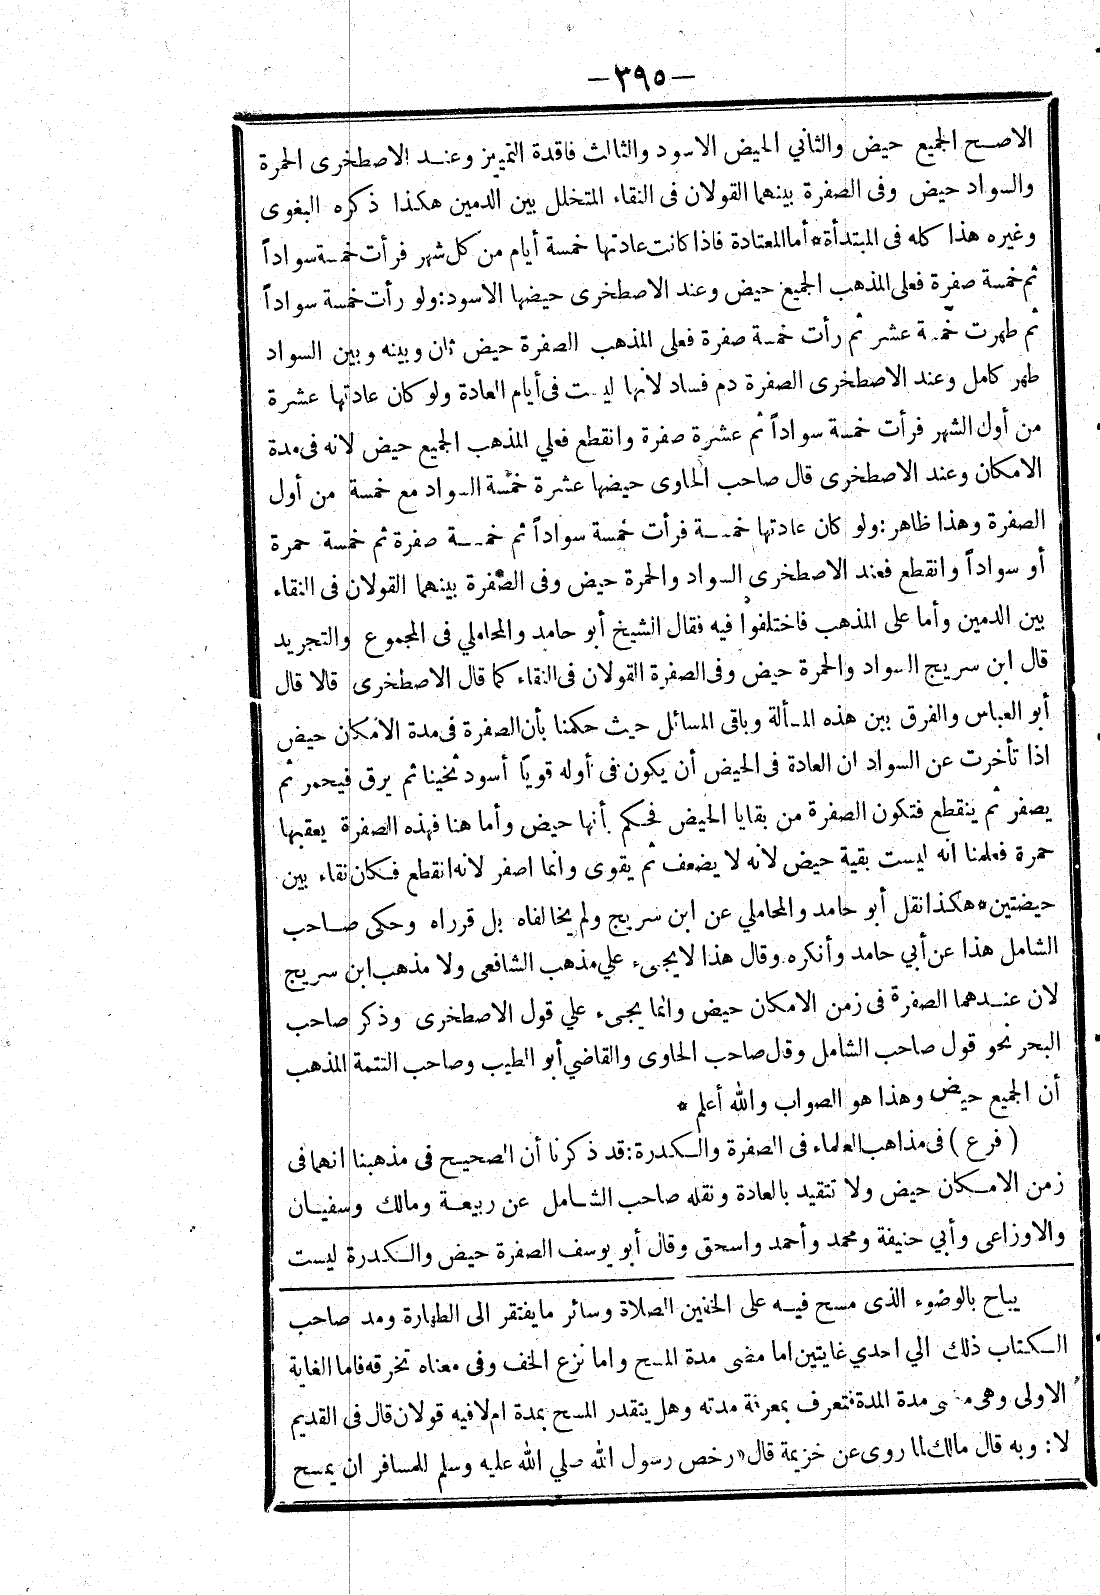 -٣٩٥-
الاصح الجميع حيض والثاني الحيض الاسود والثالث فاقدة التمييز وعند الاصطخرى الحمرة
والسواد حيض وفى الصفرة بينهما القولان فى النقاء المتخلل بين الدمين هكذا ذكره البغوى
وغيره هذا كله فى المبتدأة* أما المعتادة فاذا كانت عادتها خمسة أيام من كل شهر فرأت خمسة سواداً
ثم خمسة صفرة فعلى المذهب الجميع حيض وعند الاصطخرى حيضها الاسود: ولو رأت خمسة سواداً
ثم طهرت خمسة عشر ثم رأت خمسة صفرة فعلى المذهب الصفرة حيض ثان وبينه وبين السواد
طهر كامل وعند الاصطخرى الصفرة دم فساد لانها ليست فى أيام العادة ولو كان عادتها عشرة
من أول الشهر فرأت خمسة سواداً ثم عشرة صفرة وانقطع فعلي المذهب الجميع حيض لانه فى مدة
الامكان وعند الاصطخرى قال صاحب الحاوى حيضها عشرة خمسة السواد مع خمسة من أول
الصفرة وهذا ظاهر: ولو كان عادتها خمسة فرأت خمسة سواداً ثم خمسة صفرة ثم خمسة حمرة
أو سواداً وانقطع فعند الاصطخرى السواد والحمرة حيض وفى الصفرة بينهما القولان فى النقاء
بين الدمين وأما على المذهب فاختلفوا فيه فقال الشيخ أبو حامد والمحاملي فى المجموع والتجريد
قال ابن سريج السواد والحمرة حيض وفى الصفرة القولان فى النقاء كما قال الاصطخرى قالا قال
أبو العباس والفرق بين هذه المسألة وباقى المسائل حيث حكمنا بأن الصفرة فى مدة الامكان حيض
اذا تأخرت عن السواد ان العادة فى الحيض أن يكون فى أوله قويا أسود ثخينا ثم يرق فيحمر ثم
يصفر ثم ينقطع فتكون الصفرة من بقايا الحيض فحكم بأنها حيض وأما هنا فهذه الصفرة يعقبها
حمرة فعلمنا انه ليست بقية حيض لانه لا يضعف ثم يقوى وانما اصفر لانه انقطع فكان نقاء بين
حيضتين* هكذا نقل أبو حامد والمحاملي عن ابن سريج ولم يخالفاه بل قرراه وحكى صاحب
الشامل هذا عن أبي حامد وأنكره وقال هذا لا يجىء علي مذهب الشافعى ولا مذهب ابن سريج
لان عندهما الصفرة فى زمن الامكان حيض وانما يجىء علي قول الاصطخرى وذكر صاحب
البحر نحو قول صاحب الشامل وقال صاحب الحاوى والقاضي أبو الطيب وصاحب التتمة المذهب
أن الجميع حيض وهذا هو الصواب والله أعلم *
( فرع ) فى مذاهب العلماء فى الصفرة والكدرة: قد ذكرنا أن الصحيح فى مذهبنا انهما فى
زمن الامكان حيض ولا تتقيد بالعادة ونقله صاحب الشامل عن ربيعة ومالك وسفيان
والاوزاعى وأبي حنيفة ومحمد وأحمد واسحق وقال أبو يوسف الصفرة حيض والكدرة ليست
يباح بالوضوء الذى مسح فيه على الخفين الصلاة وسائر ما يفتقر الى الطهارة ومد صاحب
الكتاب ذلك الي احدي غايتين اما مضى مدة المسح واما نزع الخف وفى معناه تخرقه فاما الغاية
الاولى وهى مضى مدة المدة فتعرف بمعرفة مدته وهل يتقدر المسح بمدة ام لا فيه قولان قال فى القديم
لا: وبه قال مالك لما روى عن خزيمة قال «رخص رسول الله صلي الله عليه وسلم للمسافر ان يمسح